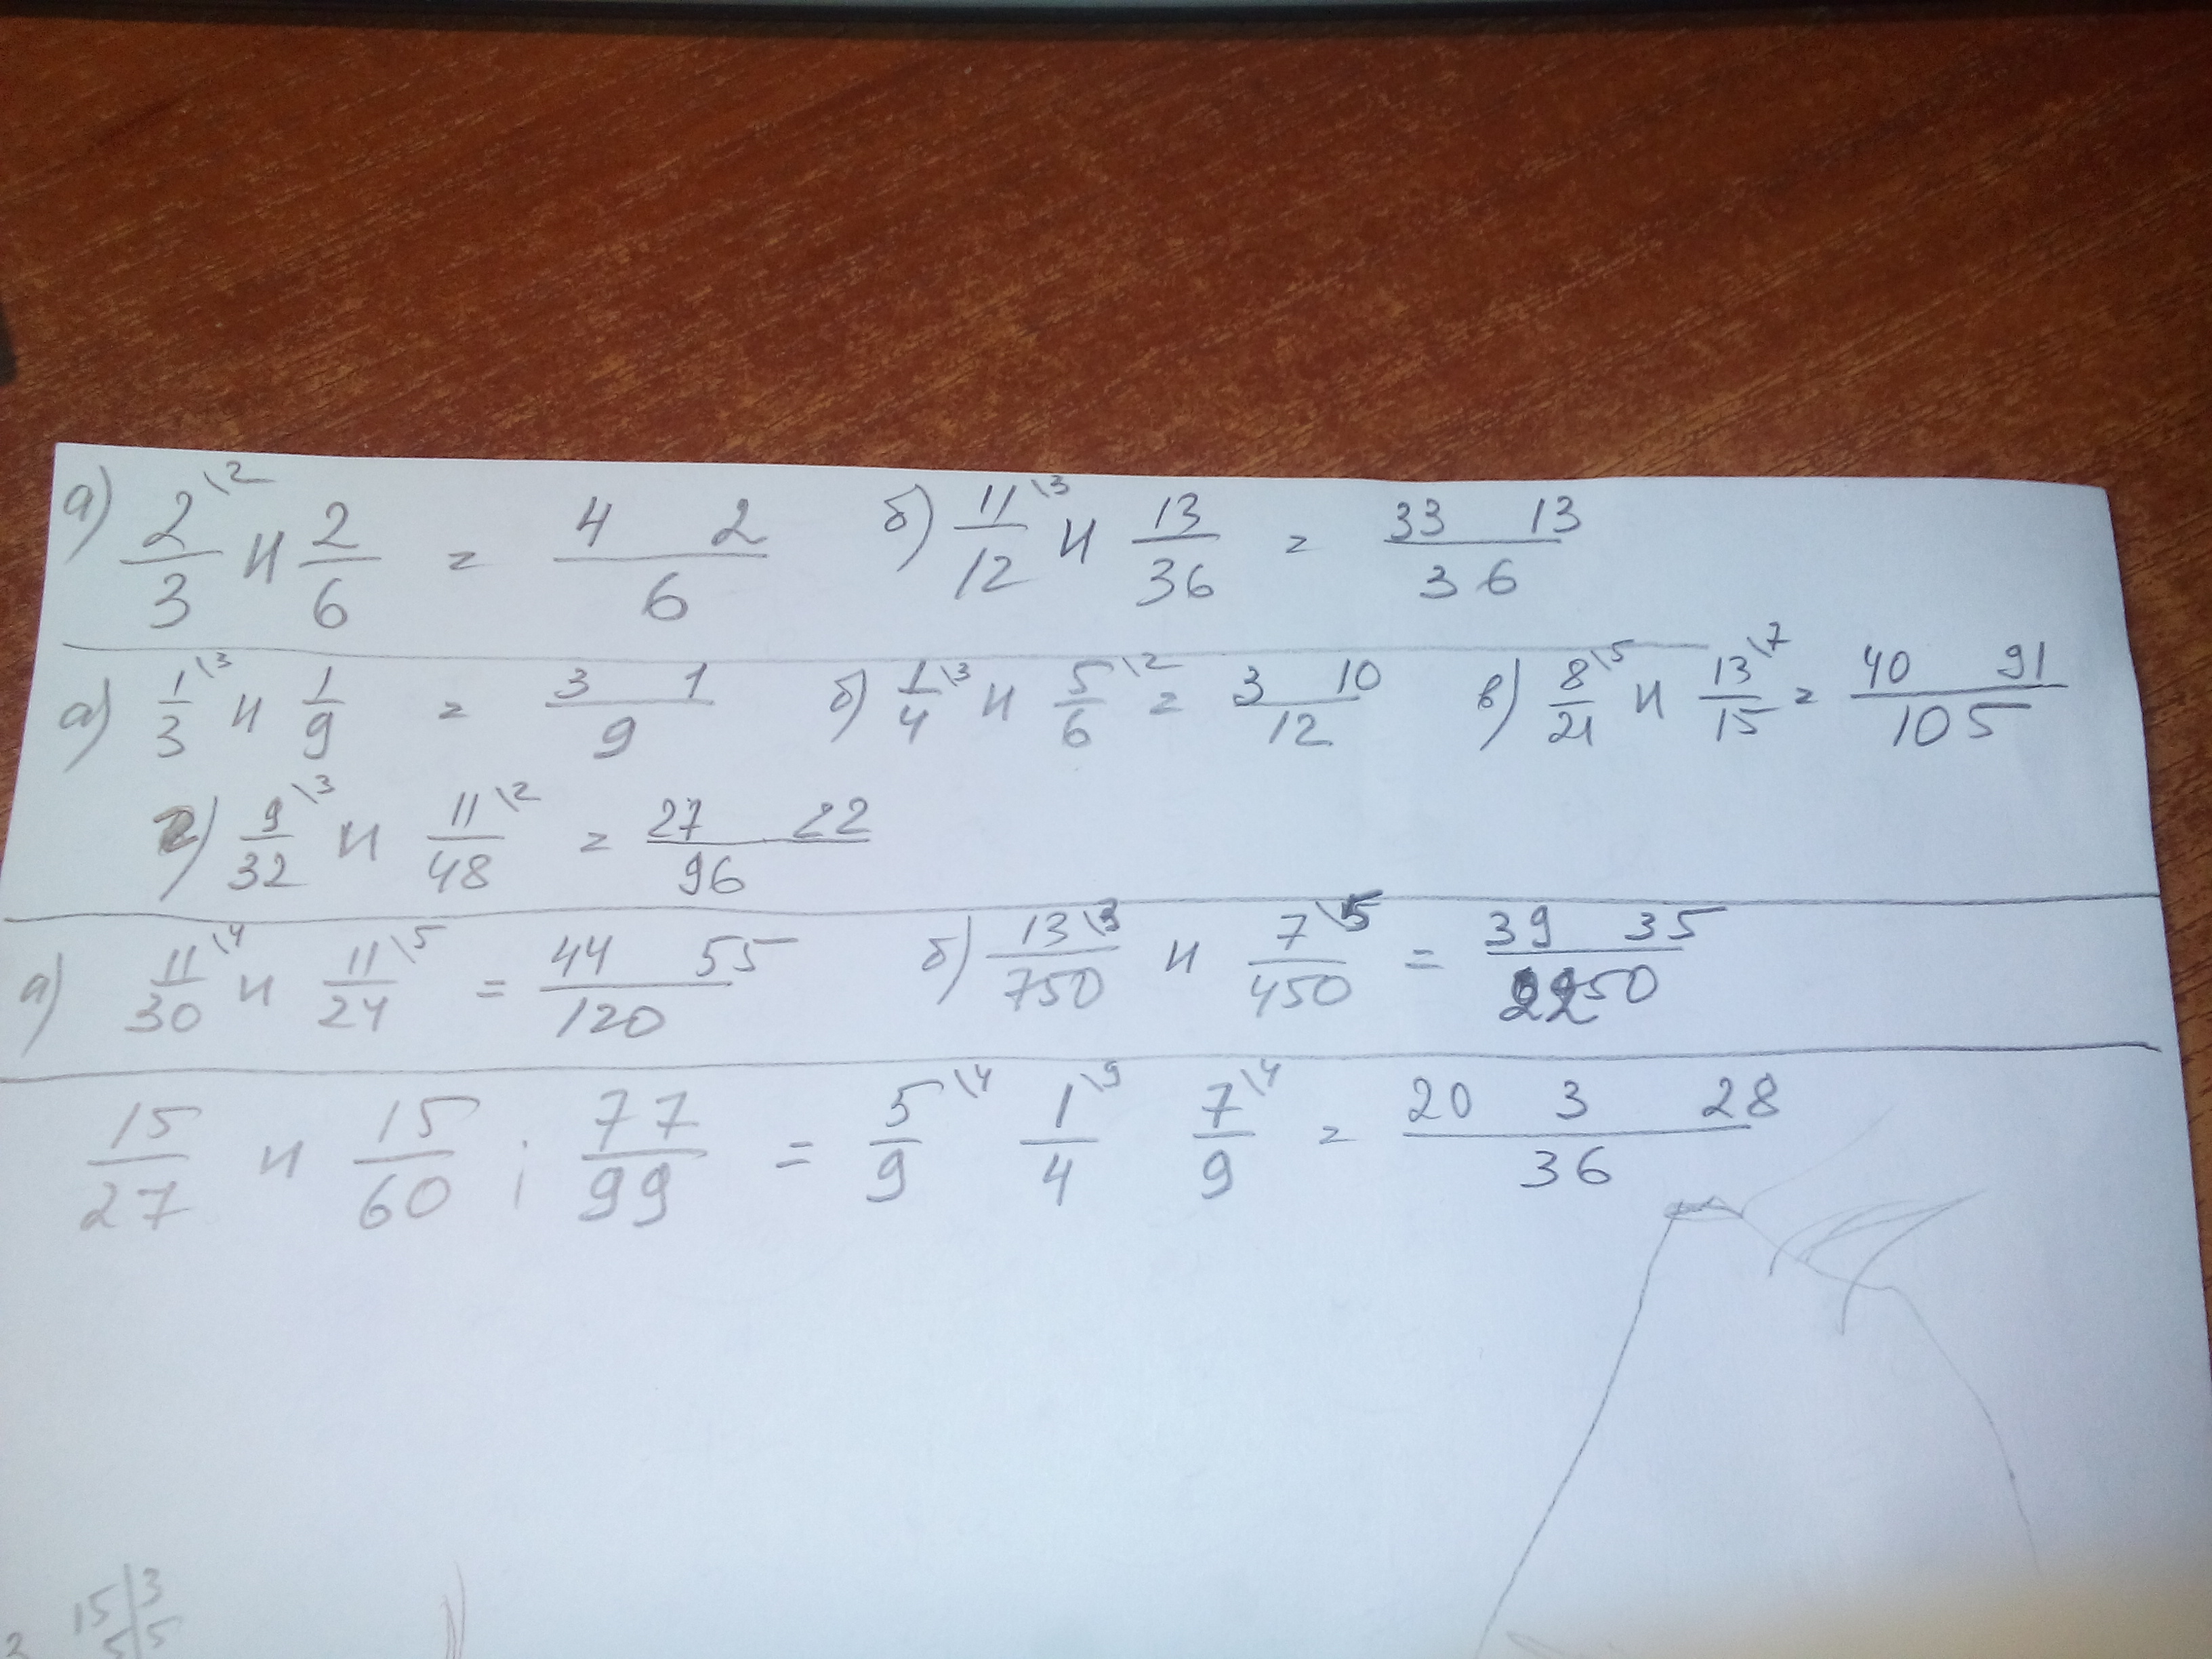 а) 2\2/3 и 2/6 = 4 2/6 б) 11\3/12 и 13/36 = 33 13/36
а) 1\3/3 и 1/9 = 3 1/9 б) 1\3/4 и 5\2/6 = 3 10/12 в) 8\5/21 и 13\7/15 = 40 91/105
г) 9\3/32 и 11\2/48 = 27 22/96
а) 11\4/30 и 11\5/24 = 44 55/120 б) 13\3/750 и 7\5/450 = 39 35/2250
15/27 и 15/60 ; 77/99 = 5\4/9 1\9/4 7\4/9 = 20 3 28/36
15|3
5|5